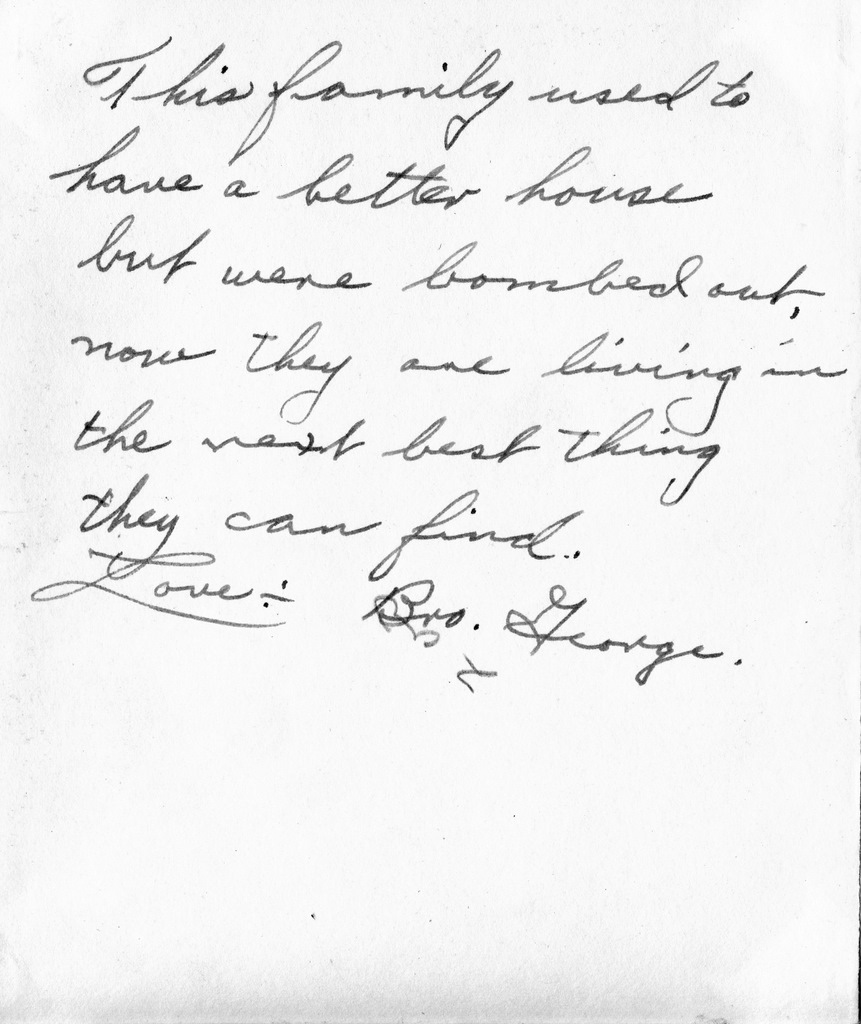 This family used to
have a better house
but were bombed out,
now they are living in
the next best thing
they can find.
Love:- Bro. George.